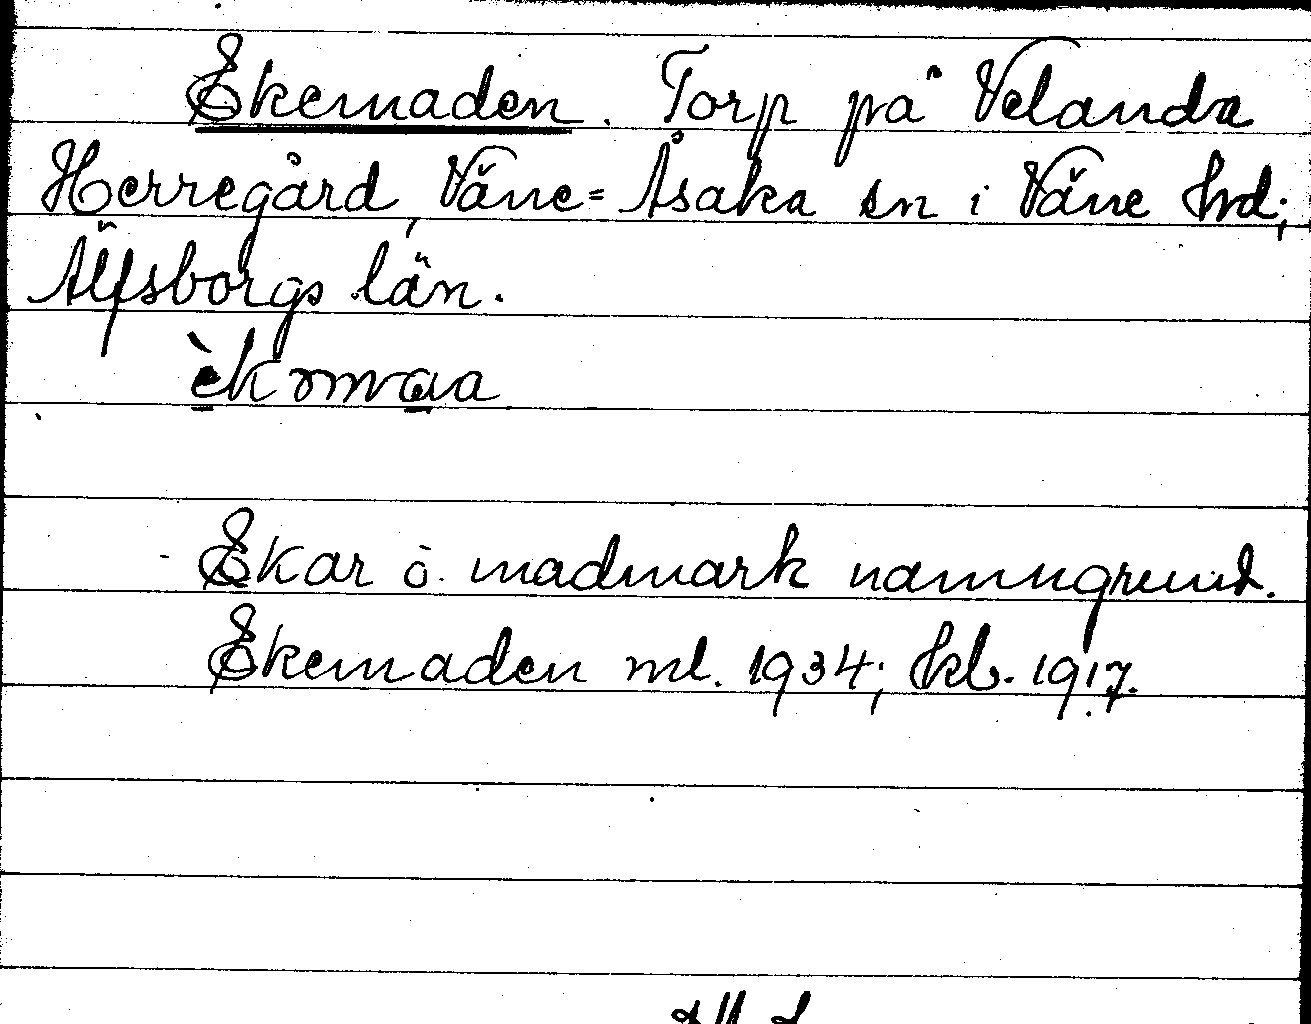 Ekemaden. Torp på Velanda
Herregård, Väne=Åsaka sn i Väne hrd;
Älfsborgs län.
Ekar o. madmark namngrund.
Ekemaden ml. 1934; hkl. 1917.